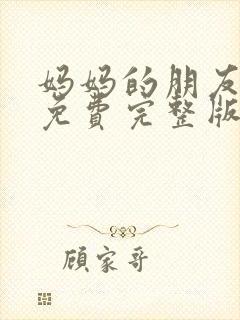 妈妈的朋友
免费完整版
顾家哥